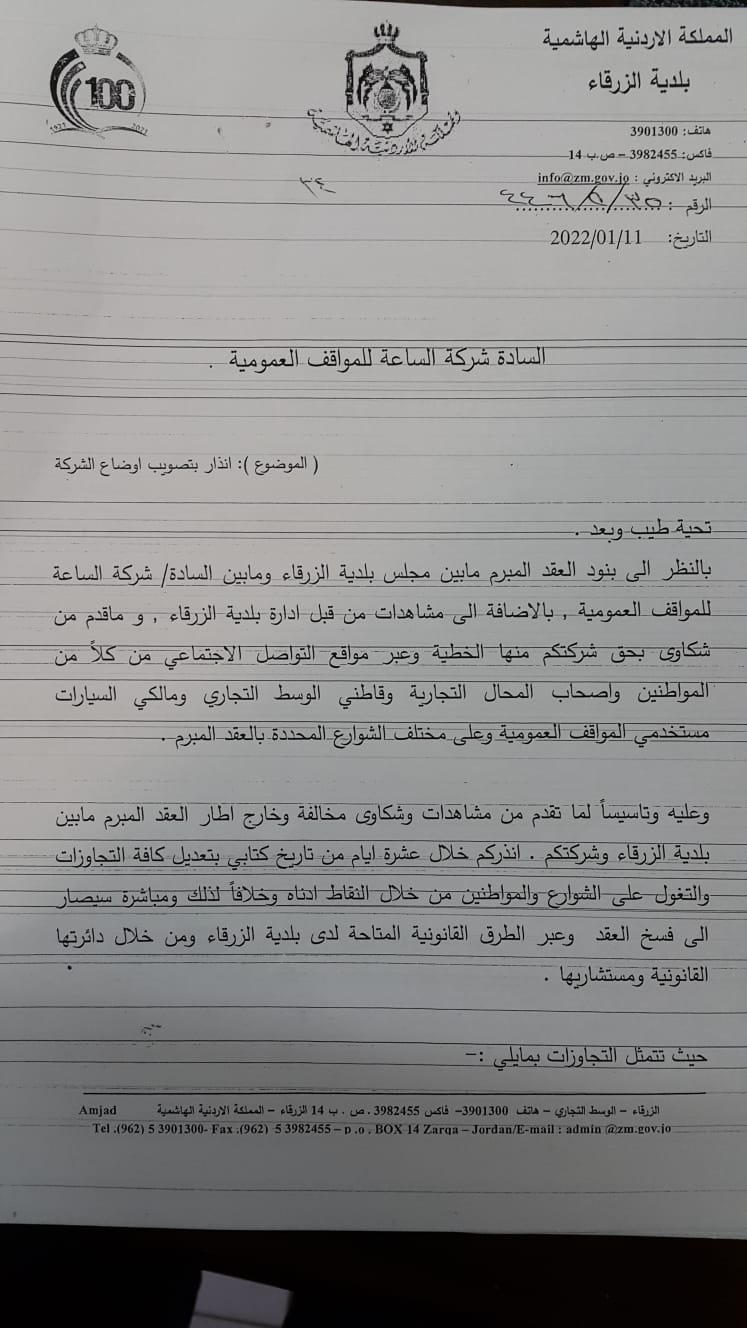 المملكة الاردنية الهاشمية
بلدية الزرقاء
هاتف: 3901300
فاكس: 3982455 – ص.ب 14
البريد الاكتروني : info@zm.gov.jo
الرقم :
التاريخ: 2022/01/11
100
1921 2021
المملكة الأردنية الهاشمية
السادة شركة الساعة للمواقف العمومية .
( الموضوع ): انذار بتصويب اوضاع الشركة
تحية طيب وبعد .
بالنظر الى بنود العقد المبرم مابين مجلس بلدية الزرقاء ومابين السادة/ شركة الساعة
للمواقف العمومية , بالاضافة الى مشاهدات من قبل ادارة بلدية الزرقاء , و ماقدم من
شكاوى بحق شركتكم منها الخطية وعبر مواقع التواصل الاجتماعي من كلاً من
المواطنين واصحاب المحال التجارية وقاطني الوسط التجاري ومالكي السيارات
مستخدمي المواقف العمومية وعلى مختلف الشوارع المحددة بالعقد المبرم .
وعليه وتاسيساً لما تقدم من مشاهدات وشكاوى مخالفة وخارج اطار العقد المبرم مابين
بلدية الزرقاء وشركتكم . انذركم خلال عشرة ايام من تاريخ كتابي بتعديل كافة التجاوزات
والتغول على الشوارع والمواطنين من خلال النقاط ادناه وخلافاً لذلك ومباشرة سيصار
الى فسخ العقد وعبر الطرق القانونية المتاحة لدى بلدية الزرقاء ومن خلال دائرتها
القانونية ومستشاريها .
حيث تتمثل التجاوزات بمايلي :–
الزرقاء – الوسط التجاري – هاتف 3901300– فاكس 3982455 . ص . ب 14 الزرقاء – المملكة الاردنية الهاشمية Amjad
Tel .(962) 5 3901300- Fax .(962) 5 3982455 – p .o . BOX 14 Zarqa – Jordan/E-mail : admin @zm.gov.jo